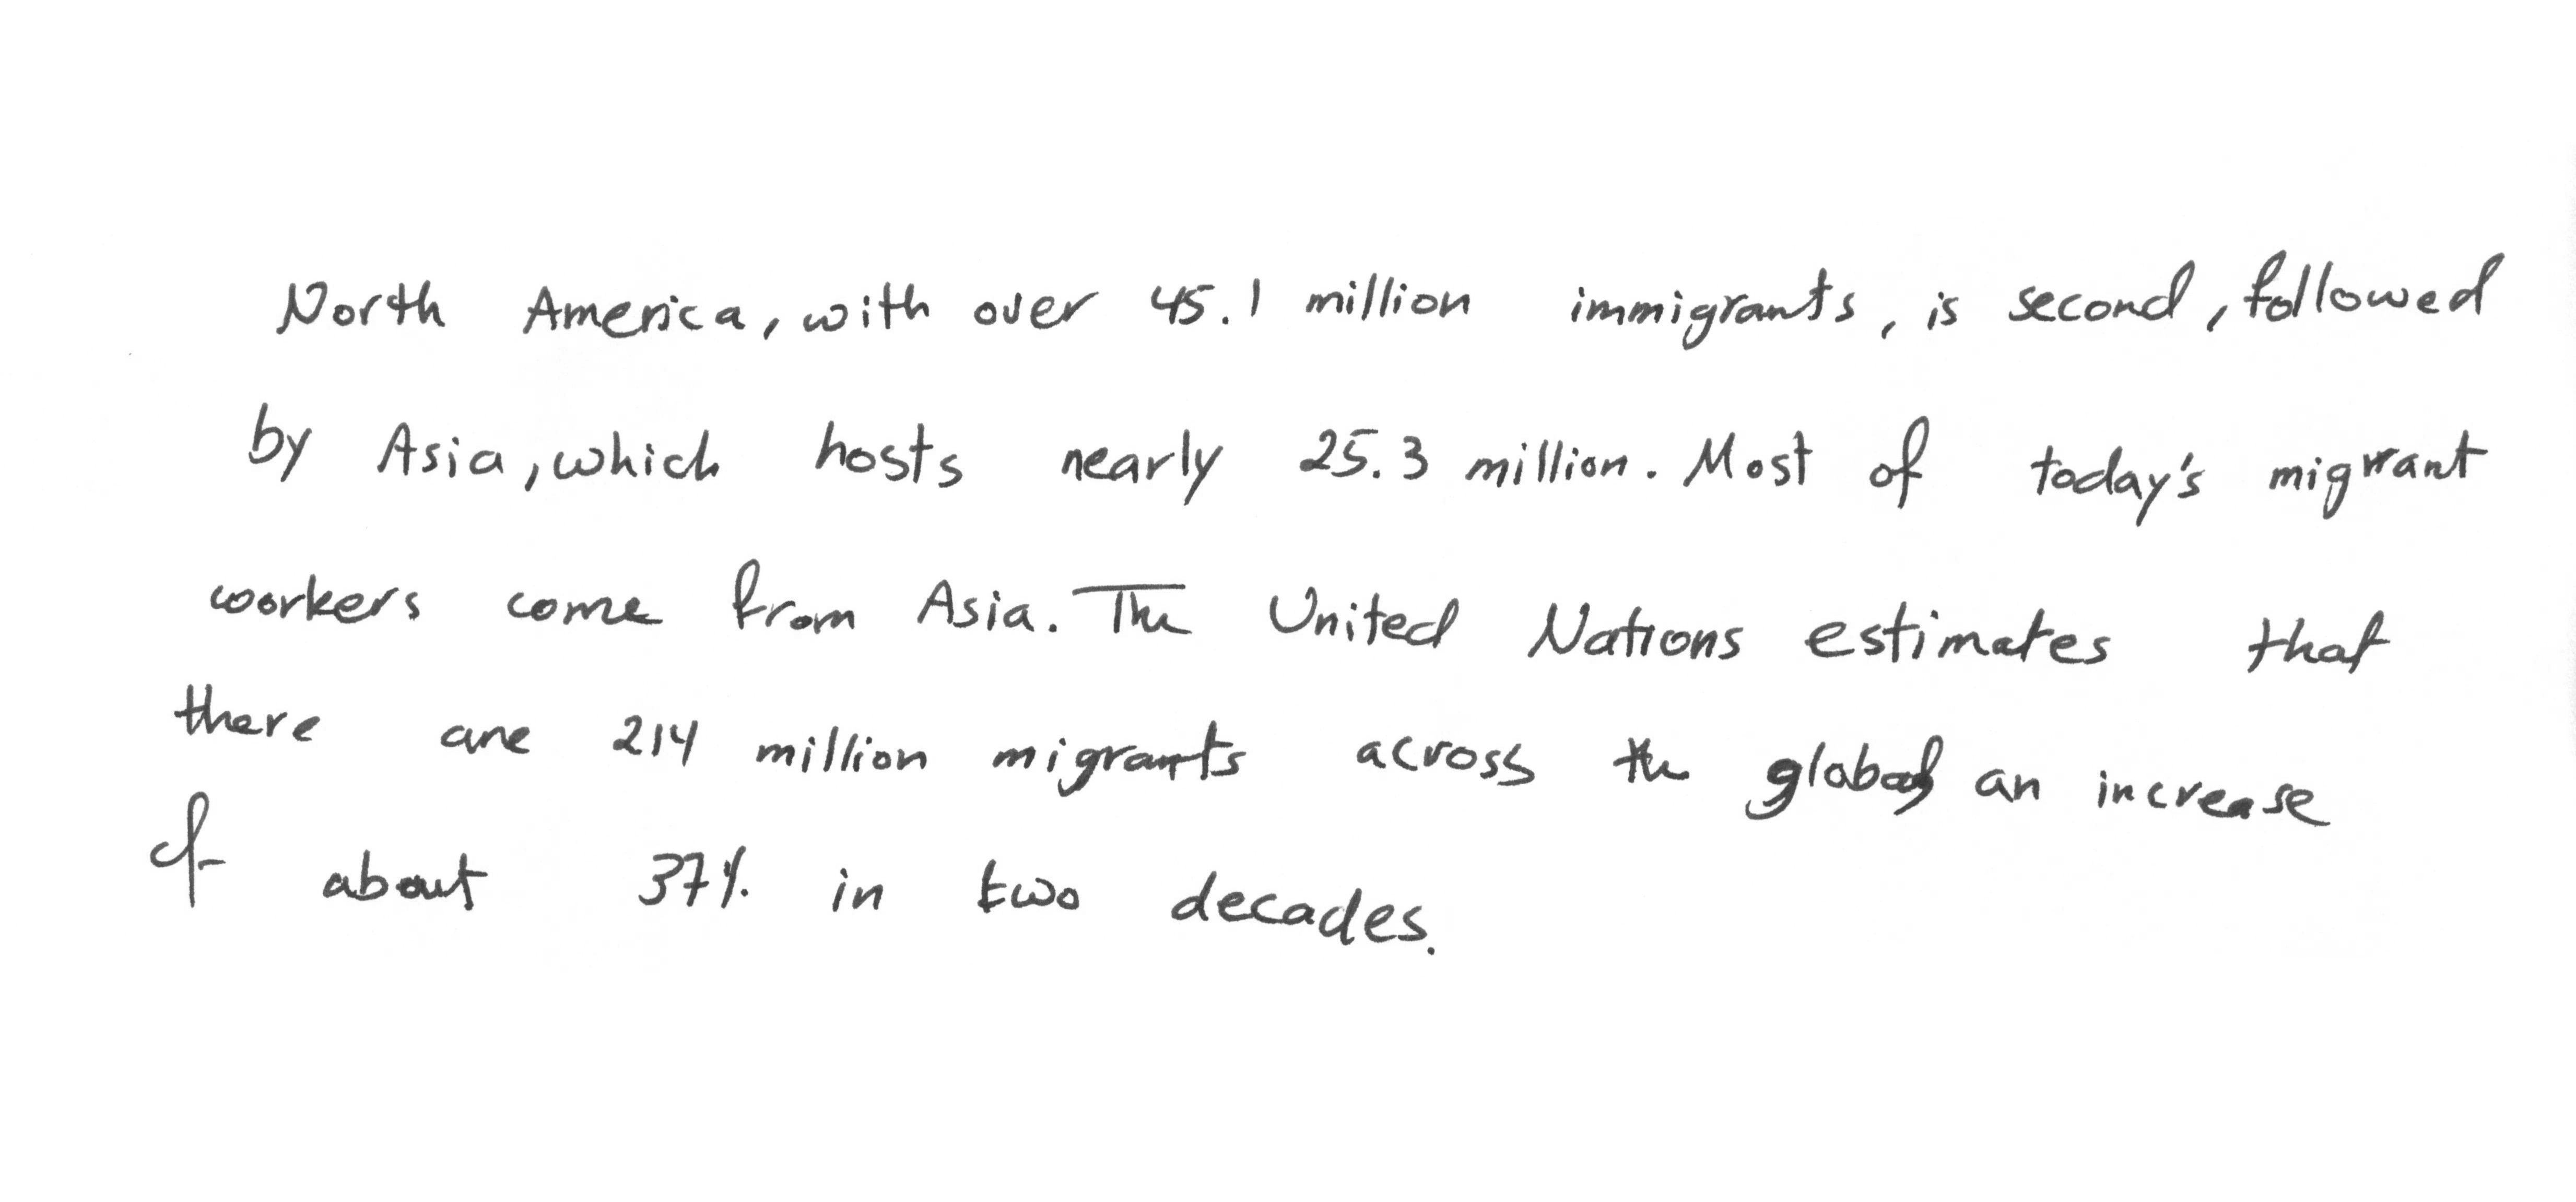 North America, with over 45.1 million immigrants, is second, followed
by Asia, which hosts nearly 25.3 million. Most of today's migrant
workers come from Asia. The United Nations estimates that
there are 214 million migrants across the an increase
of about 37% in two decades.